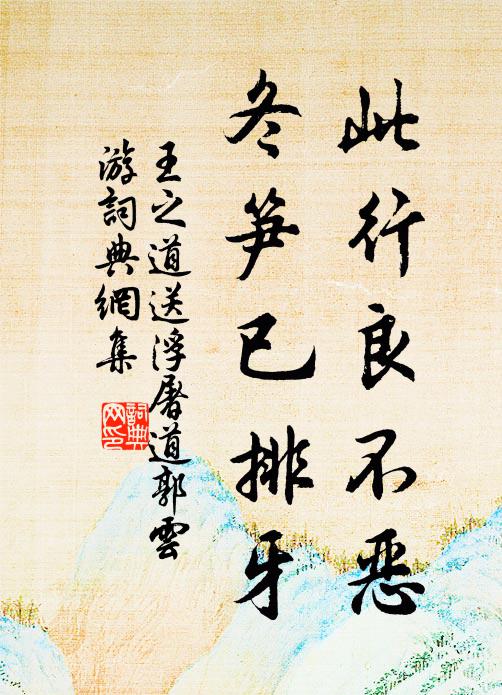 此行良不恶
冬笋已排牙
王之道送浮屠道郭雲
游詞典網集
詞典
网印